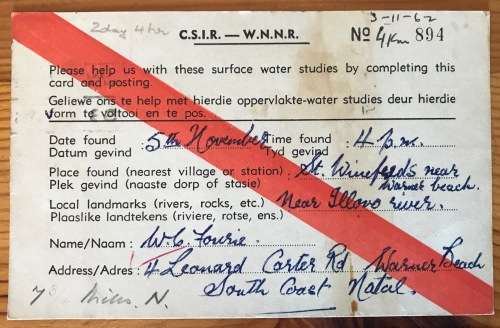 3-11-62
2day 4hr
C.S.I.R. — W.N.N.R. No 4Km 894
Please help us with these surface water studies by completing
this card and posting.
Geliewe ons te help met hierdie oppervlakte-water studies deur hierdie
vorm te voltooi en te pos.
Date found : 5th November Time found : 4 p.m.
Datum gevind Tyd gevind
Place found (nearest village or station) : St. Winefeds near
Plek gevind (naaste dorp of stasie) Warner beach.
Local landmarks (rivers, rocks, etc.) : Near Illovo river.
Plaaslike landtekens (riviere, rotse, ens.)
Name/Naam : W. C. Fourie.
Address/Adres : 4 Leonard Carter Rd Warner Beach
South Coast Natal.
Miles. N.